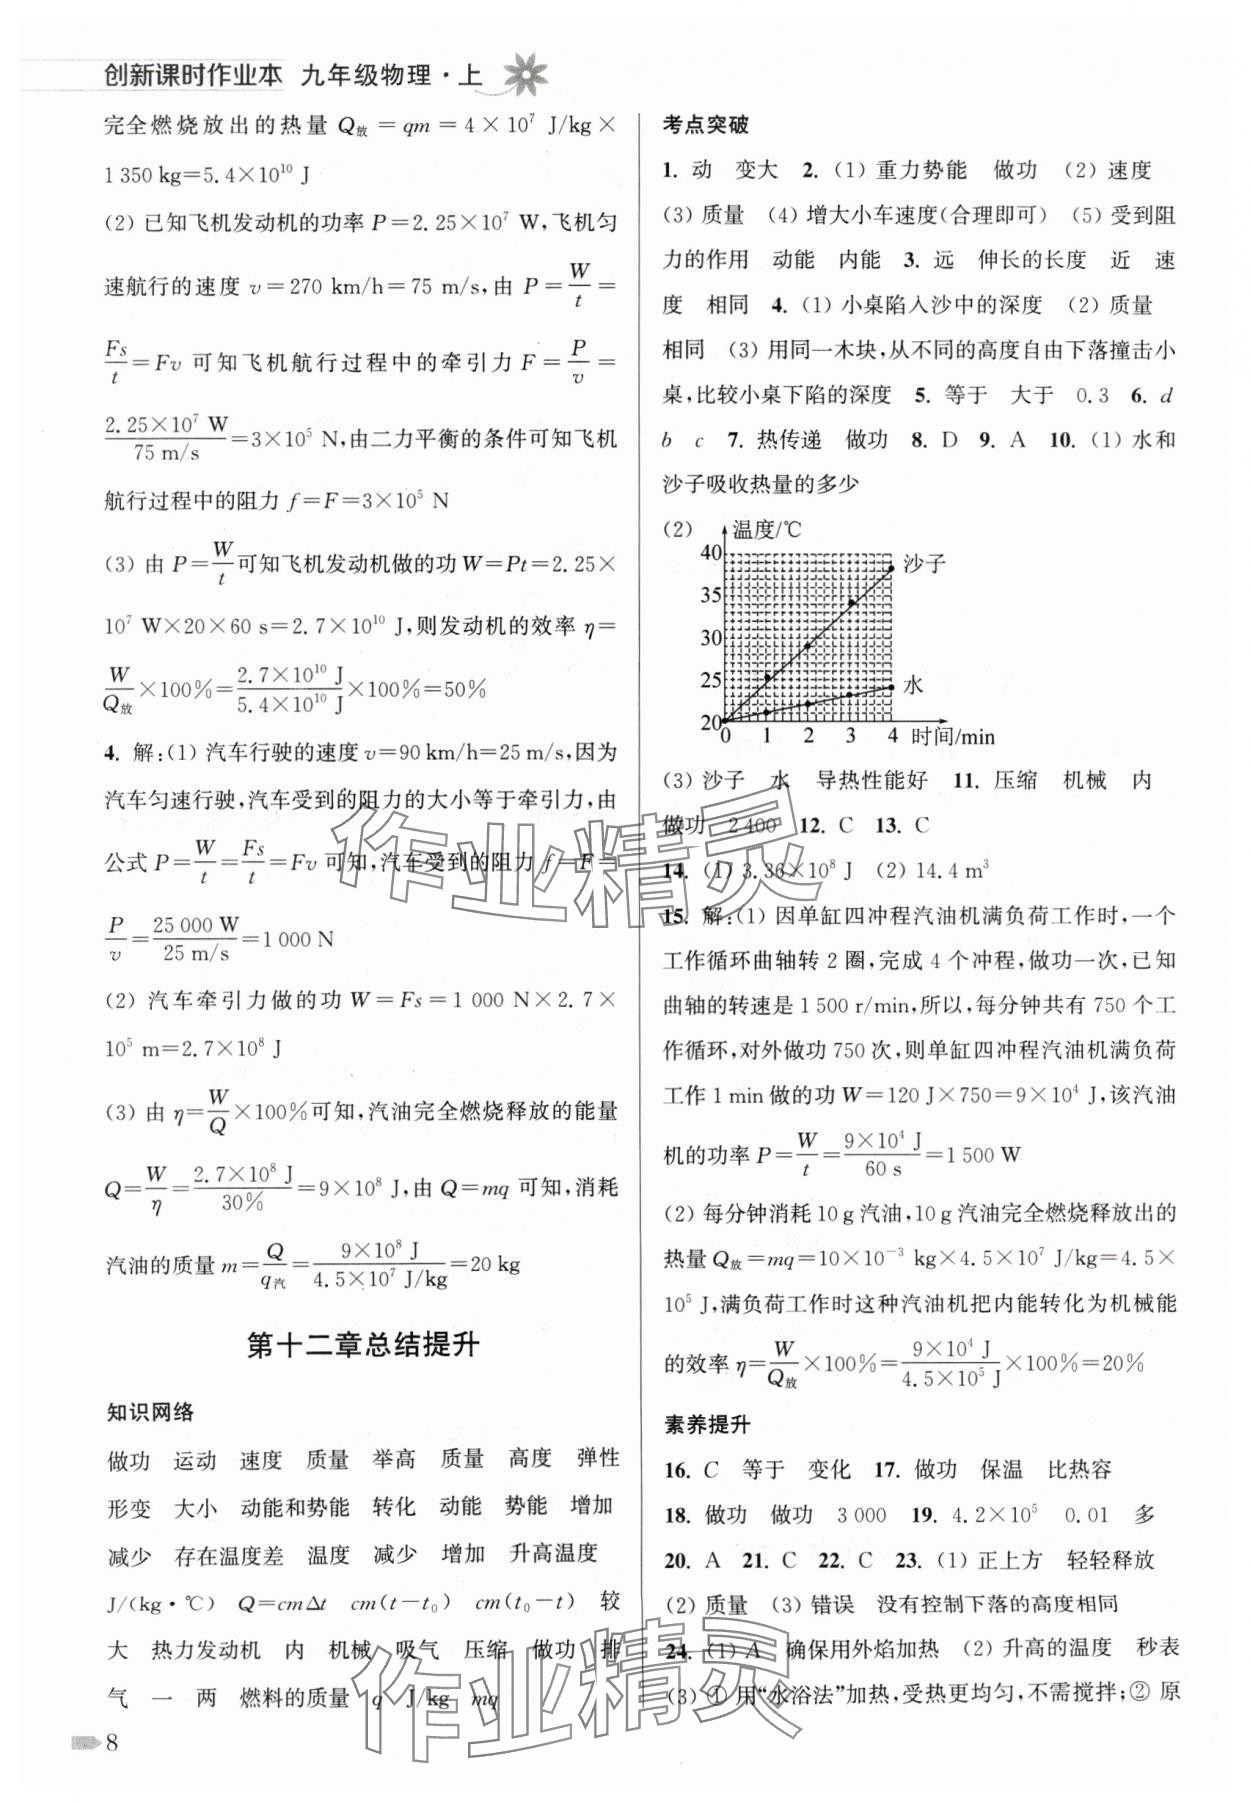 创新课时作业本 九年级物理·上
完全燃烧放出的热量 Q放=qm=4×10⁷ J/kg×
1 350 kg=5.4×10¹⁰ J
(2) 已知飞机发动机的功率 P=2.25×10⁷ W,飞机匀
速航行的速度 v=270 km/h=75 m/s,由 P=W/t=
Fs/t=Fv 可知飞机航行过程中的牵引力 F=P/v=
2.25×10⁷ W/75 m/s=3×10⁵ N,由二力平衡的条件可知飞机
航行过程中的阻力 f=F=3×10⁵ N
(3) 由 P=W/t可知飞机发动机做的功 W=Pt=2.25×
10⁷ W×20×60 s=2.7×10¹⁰ J,则发动机的效率 η=
W/Q放×100%=2.7×10¹⁰ J/5.4×10¹⁰ J×100%=50%
4. 解:(1) 汽车行驶的速度 v=90 km/h=25 m/s,因为
汽车匀速行驶,汽车受到的阻力的大小等于牵引力,由
公式 P=W/t=Fs/t=Fv 可知,汽车受到的阻力 f=F=
P/v=25 000 W/25 m/s=1 000 N
(2) 汽车牵引力做的功 W=Fs=1 000 N×2.7×
10⁵ m=2.7×10⁸ J
(3) 由 η=W/Q×100%可知,汽油完全燃烧释放的能量
Q=W/η=2.7×10⁸ J/30%=9×10⁸ J,由 Q=mq 可知,消耗
汽油的质量 m=Q/q汽=9×10⁸ J/4.5×10⁷ J/kg=20 kg
第十二章总结提升
知识网络
做功 运动 速度 质量 举高 质量 高度 弹性
形变 大小 动能和势能 转化 动能 势能 增加
减少 存在温度差 温度 减少 增加 升高温度
J/(kg·℃) Q=cmΔt cm(t-t₀) cm(t₀-t) 较
大 热力发动机 内 机械 吸气 压缩 做功 排
气 一 两 燃料的质量 q J/kg mq
8
考点突破
1. 动 变大 2. (1) 重力势能 做功 (2) 速度
(3) 质量 (4) 增大小车速度(合理即可) (5) 受到阻
力的作用 动能 内能 3. 远 伸长的长度 近 速
度 相同 4. (1) 小桌陷入沙中的深度 (2) 质量
相同 (3) 用同一木块,从不同的高度自由下落撞击小
桌,比较小桌下陷的深度 5. 等于 大于 0.3 6. d
b c 7. 热传递 做功 8. D 9. A 10. (1) 水和
沙子吸收热量的多少
(2) 温度/℃
40
沙子
35
30
25
水
20
0 1 2 3 4 时间/min
(3) 沙子 水 导热性能好 11. 压缩 机械 内
做功 2 400 12. C 13. C
14. (1) 3.36×10⁸ J (2) 14.4 m³
15. 解:(1) 因单缸四冲程汽油机满负荷工作时,一个
工作循环曲轴转 2 圈,完成 4 个冲程,做功一次,已知
曲轴的转速是 1 500 r/min,所以,每分钟共有 750 个工
作循环,对外做功 750 次,则单缸四冲程汽油机满负荷
工作 1 min 做的功 W=120 J×750=9×10⁴ J,该汽油
机的功率 P=W/t=9×10⁴ J/60 s=1 500 W
(2) 每分钟消耗 10 g 汽油,10 g 汽油完全燃烧释放出的
热量 Q放=mq=10×10⁻³ kg×4.5×10⁷ J/kg=4.5×
10⁵ J,满负荷工作时这种汽油机把内能转化为机械能
的效率 η=W/Q放×100%=9×10⁴ J/4.5×10⁵ J×100%=20%
素养提升
16. C 等于 变化 17. 做功 保温 比热容
18. 做功 做功 3 000 19. 4.2×10⁵ 0.01 多
20. A 21. C 22. C 23. (1) 正上方 轻轻释放
(2) 质量 (3) 错误 没有控制下落的高度相同
24. (1) A 确保用外焰加热 (2) 升高的温度 秒表
(3) ① 用“水浴法”加热,受热更均匀,不需搅拌;② 原
作业精灵
作业精灵